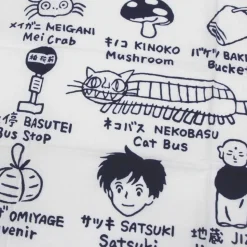 メイガニ MEIGANI
Mei Crab
キノコ KINOKO
Mushroom
バケツ BAKE
Bucke
停 BASUTEI
Bus Stop
ネコバス NEKOBASU
Cat Bus
OMIYAGE
venir
サツキ SATSUKI
Satsuki
地蔵